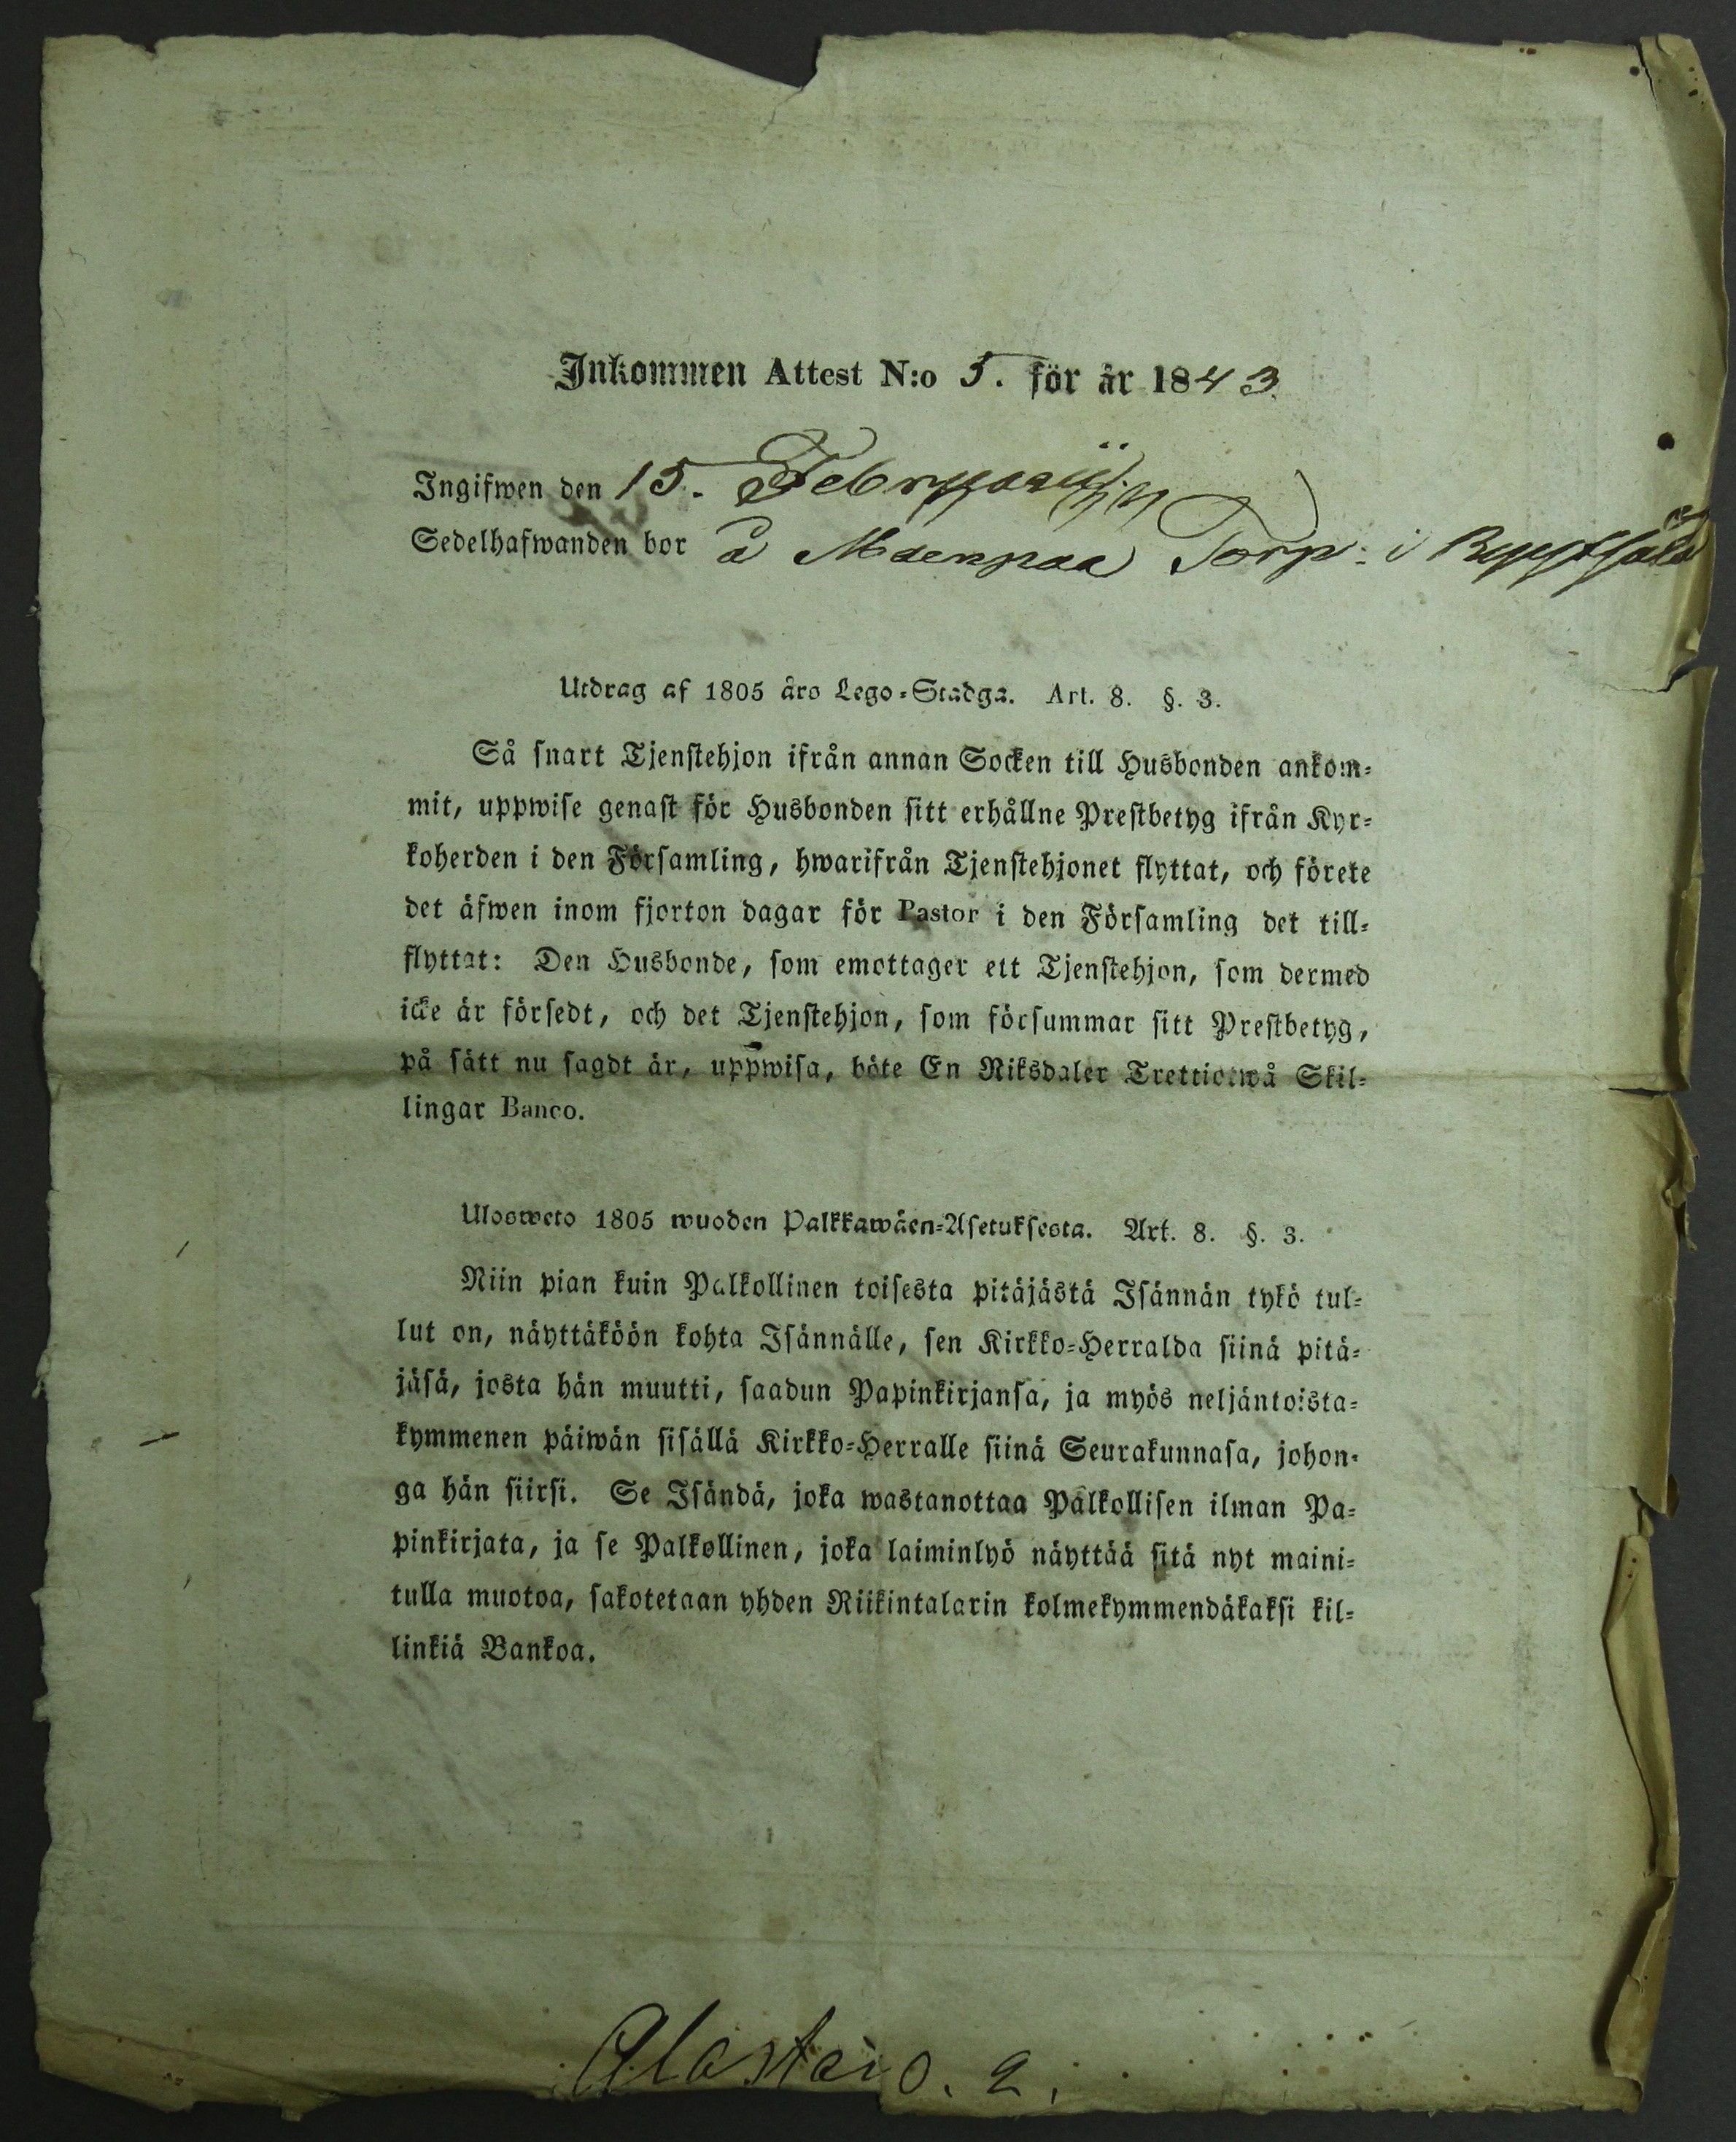 Inkommen Attest N:o 5. för år 1843.
Ingifwen den 15. Februarii
Sedelhafwanden bor å Mäenpää Torp i
Utdrag af 1805 års Lego-Stadga. Art. 8. §. 3.
Så snart Tjenstehjon ifrån annan Socken till Husbonden ankom-
mit, uppwise genast för Husbonden sitt erhållne Prestbetyg ifrån Kyr-
koherden i den Församling, hwarifrån Tjenstehjonet flyttat, och förete
det äfwen inom fjorton dagar för Pastor i den Församling det till-
flyttat: Den Husbonde, som emottager ett Tjenstehjon, som dermed
icke är försedt, och det Tjenstehjon, som försummar sitt Prestbetyg,
på sätt nu sagdt är, uppwisa, böte En Riksdaler Trettiotwå Skil-
lingar Banco.
Ulosweto 1805 wuoden Palkkawäen-Asetuksesta. Art. 8. §. 3.
Niin pian kuin Palkollinen toisesta pitäjästä Isännän tykö tul-
lut on, näyttäköön kohta Isännälle, sen Kirkko-Herralda siinä pitä-
jäsä, josta hän muutti, saadun Papinkirjansa, ja myös neljäntoista-
kymmenen päiwän sisällä Kirkko-Herralle siinä Seurakunnasa, johon-
ga hän siirsi. Se Isändä, joka wastanottaa Palkollisen ilman Pa-
pinkirjata, ja se Palkollinen, joka laiminlyö näyttää sitä nyt maini-
tulla muotoa, sakotetaan yhden Riikintalarin kolmekymmendäkaksi kil-
linkiä Bankoa.
Alastaro. 2.